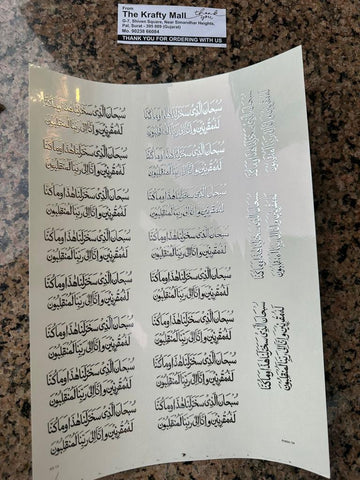 From
The Krafty Mall
Thank you
G-7, Shiven Square, Near Simandhar Heights,
Pal, Surat - 395 009 (Gujarat)
Mo. 90238 66084
THANK YOU FOR ORDERING WITH US
سُبحانَ الَّذِى سَخَّرَ لَنا هٰذا وَما كُنّا
لَهُ مُقرِنِينَ وَ اِنّا اِلىٰ رَبِّنا لَمُنقَلِبُونَ
سُبحانَ الَّذِى سَخَّرَ لَنا هٰذا وَما كُنّا
لَهُ مُقرِنِينَ وَ اِنّا اِلىٰ رَبِّنا لَمُنقَلِبُونَ
سُبحانَ الَّذِى سَخَّرَ لَنا هٰذا وَما كُنّا
لَهُ مُقرِنِينَ وَ اِنّا اِلىٰ رَبِّنا لَمُنقَلِبُونَ
سُبحانَ الَّذِى سَخَّرَ لَنا هٰذا وَما كُنّا
لَهُ مُقرِنِينَ وَ اِنّا اِلىٰ رَبِّنا لَمُنقَلِبُونَ
سُبحانَ الَّذِى سَخَّرَ لَنا هٰذا وَما كُنّا
لَهُ مُقرِنِينَ وَ اِنّا اِلىٰ رَبِّنا لَمُنقَلِبُونَ
سُبحانَ الَّذِى سَخَّرَ لَنا هٰذا وَما كُنّا
لَهُ مُقرِنِينَ وَ اِنّا اِلىٰ رَبِّنا لَمُنقَلِبُونَ
سُبحانَ الَّذِى سَخَّرَ لَنا هٰذا وَما كُنّا
لَهُ مُقرِنِينَ وَ اِنّا اِلىٰ رَبِّنا لَمُنقَلِبُونَ
سُبحانَ الَّذِى سَخَّرَ لَنا هٰذا وَما كُنّا
لَهُ مُقرِنِينَ وَ اِنّا اِلىٰ رَبِّنا لَمُنقَلِبُونَ
سُبحانَ الَّذِى سَخَّرَ لَنا هٰذا وَما كُنّا
لَهُ مُقرِنِينَ وَ اِنّا اِلىٰ رَبِّنا لَمُنقَلِبُونَ
سُبحانَ الَّذِى سَخَّرَ لَنا هٰذا وَما كُنّا
لَهُ مُقرِنِينَ وَ اِنّا اِلىٰ رَبِّنا لَمُنقَلِبُونَ
سُبحانَ الَّذِى سَخَّرَ لَنا هٰذا وَما كُنّا
لَهُ مُقرِنِينَ وَ اِنّا اِلىٰ رَبِّنا لَمُنقَلِبُونَ
سُبحانَ الَّذِى سَخَّرَ لَنا هٰذا وَما كُنّا
لَهُ مُقرِنِينَ وَ اِنّا اِلىٰ رَبِّنا لَمُنقَلِبُونَ
سُبحانَ الَّذِى سَخَّرَ لَنا هٰذا وَما كُنّا
لَهُ مُقرِنِينَ وَ اِنّا اِلىٰ رَبِّنا لَمُنقَلِبُونَ
سُبحانَ الَّذِى سَخَّرَ لَنا هٰذا وَما كُنّا
لَهُ مُقرِنِينَ وَ اِنّا اِلىٰ رَبِّنا لَمُنقَلِبُونَ
سُبحانَ الَّذِى سَخَّرَ لَنا هٰذا وَما كُنّا
لَهُ مُقرِنِينَ وَ اِنّا اِلىٰ رَبِّنا لَمُنقَلِبُونَ
سُبحانَ الَّذِى سَخَّرَ لَنا هٰذا وَما كُنّا
لَهُ مُقرِنِينَ وَ اِنّا اِلىٰ رَبِّنا لَمُنقَلِبُونَ
سُبحانَ الَّذِى سَخَّرَ لَنا هٰذا وَما كُنّا
لَهُ مُقرِنِينَ وَ اِنّا اِلىٰ رَبِّنا لَمُنقَلِبُونَ
سُبحانَ الَّذِى سَخَّرَ لَنا هٰذا وَما كُنّا
لَهُ مُقرِنِينَ وَ اِنّا اِلىٰ رَبِّنا لَمُنقَلِبُونَ
سُبحانَ الَّذِى سَخَّرَ لَنا هٰذا وَما كُنّا
لَهُ مُقرِنِينَ وَ اِنّا اِلىٰ رَبِّنا لَمُنقَلِبُونَ